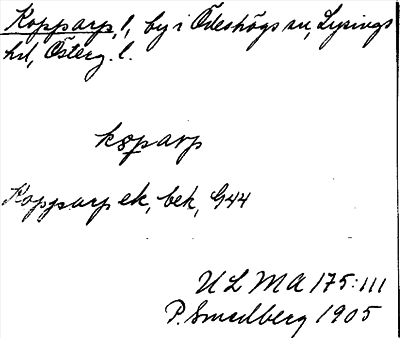 Kopparp, l, by i Ödeshögs sn, Lysings
hd, Österg. l.
koparp
Kopparp ek, bek, G44
ULMA 175:111
P. Smedberg 1905